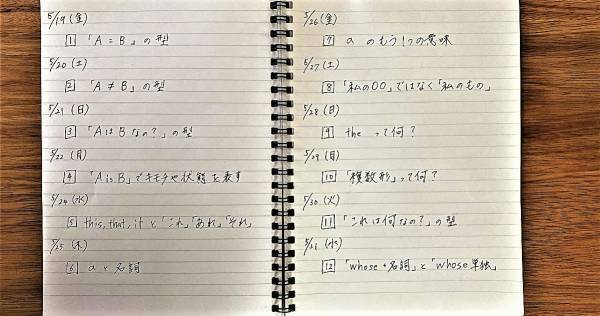 5/19 (金)
1 「A = B」の型
5/20 (土)
2 「A ≠ B」の型
5/21 (日)
3 「AはBなの?」の型
5/22 (月)
4 「A is B」でキモチや状態を表す
5/24 (水)
5 this, that, it と「これ」「あれ」「それ」
5/25 (木)
6 a と名詞
5/26 (金)
7 a のもう1つの意味
5/27 (土)
8 「私の〇〇」ではなく「私のもの」
5/28 (日)
9 the って何?
5/29 (月)
10 「複数形」って何?
5/30 (火)
11 「これは何なの?」の型
5/31 (水)
12 「whose・名詞」と「whose単独」